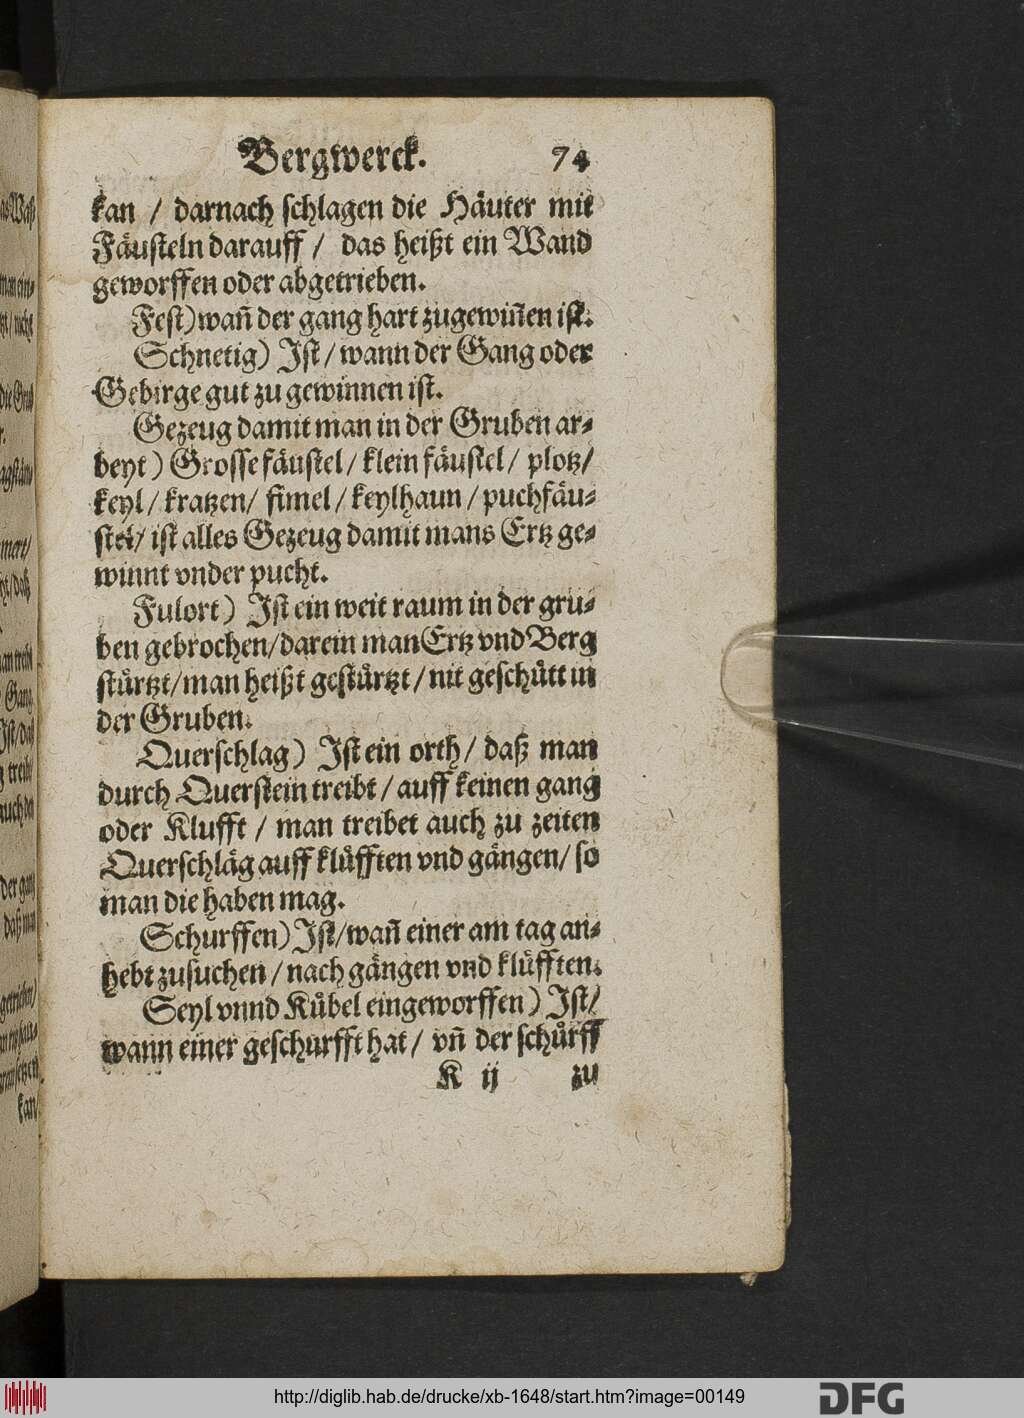 Bergwerck. 74
kan / darnach schlagen die Häuter mit
Fäusteln darauff / das heißt ein Wand
geworffen oder abgetrieben.
Fest) wañ der gang hart zugewiñen ist.
Schnetig) Ist / wann der Gang oder
Gebirge gut zu gewinnen ist.
Gezeug damit man in der Gruben ar⸗
beyt) Grosse fäustel / klein fäustel / plotz /
keyl / kratzen / fimel / keylhaun / puchfäu⸗
stel / ist alles Gezeug damit mans Ertz ge⸗
winnt vnder pucht.
Fulort) Ist ein weit raum in der gru⸗
ben gebrochen / darein man Ertz vnd Berg
stürtzt / man heißt gestürtzt / nit geschütt in
der Gruben.
Querschlag) Ist ein orth / daß man
durch Querstein treibt / auff keinen gang
oder Klufft / man treibet auch zu zeiten
Querschläg auff klüfften vnd gängen / so
man die haben mag.
Schurffen) Ist / wañ einer am tag an⸗
hebt zusuchen / nach gängen vnd klüfften.
Seyl vnnd Kübel eingeworffen) Ist /
wann einer geschurfft hat / vñ der schürff
K ij zu
http://diglib.hab.de/drucke/xb-1648/start.htm?image=00149
DFG